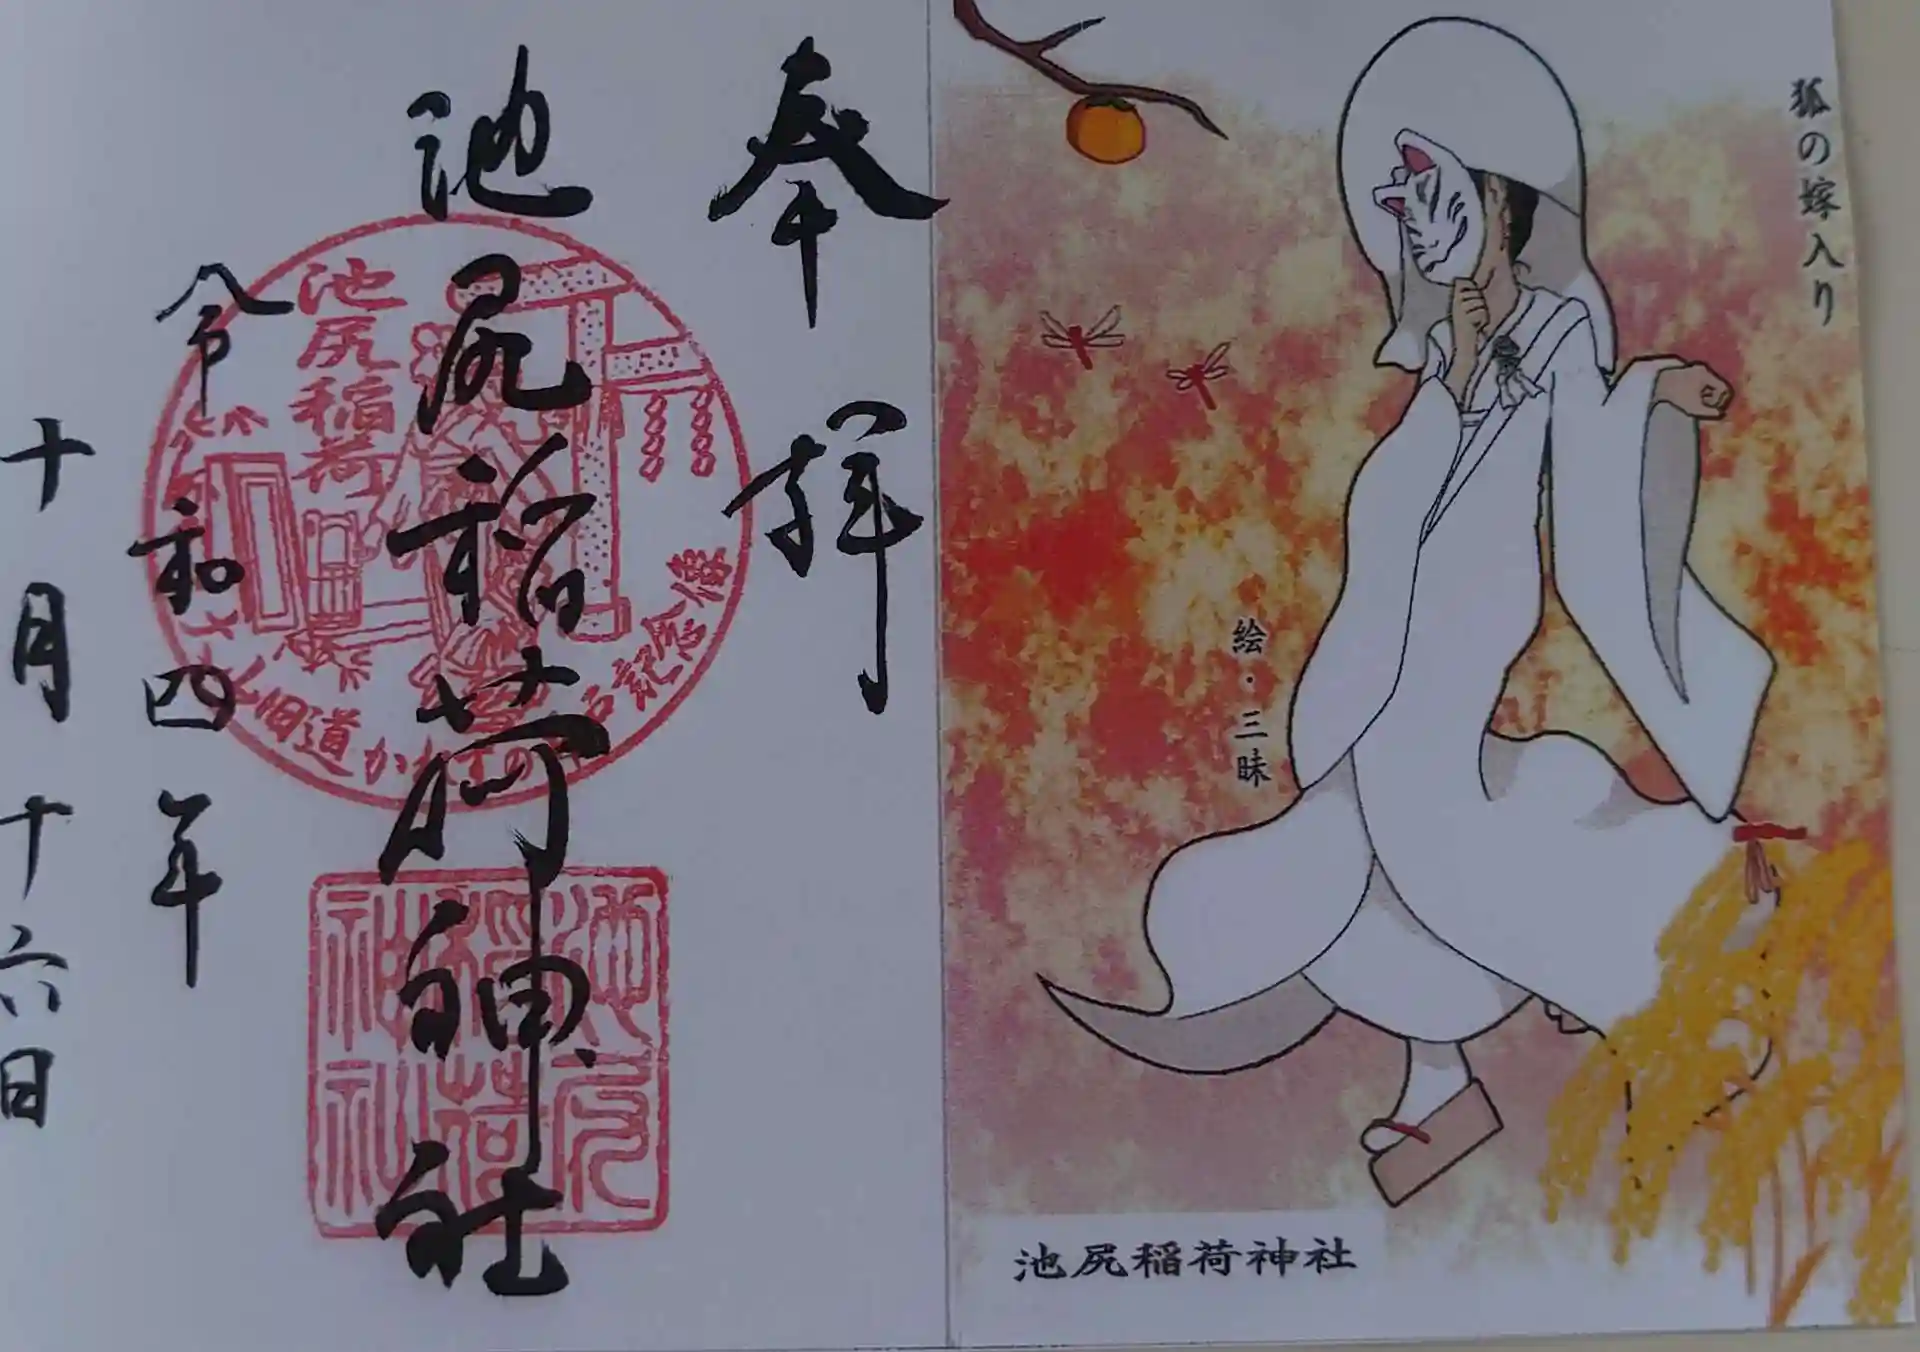 狐の嫁入り
絵・三昧
池尻稲荷神社
奉拝
池尻稲荷神社
令和四年
十月十六日
池尻稲荷
旧道
池尻
稲荷
神社